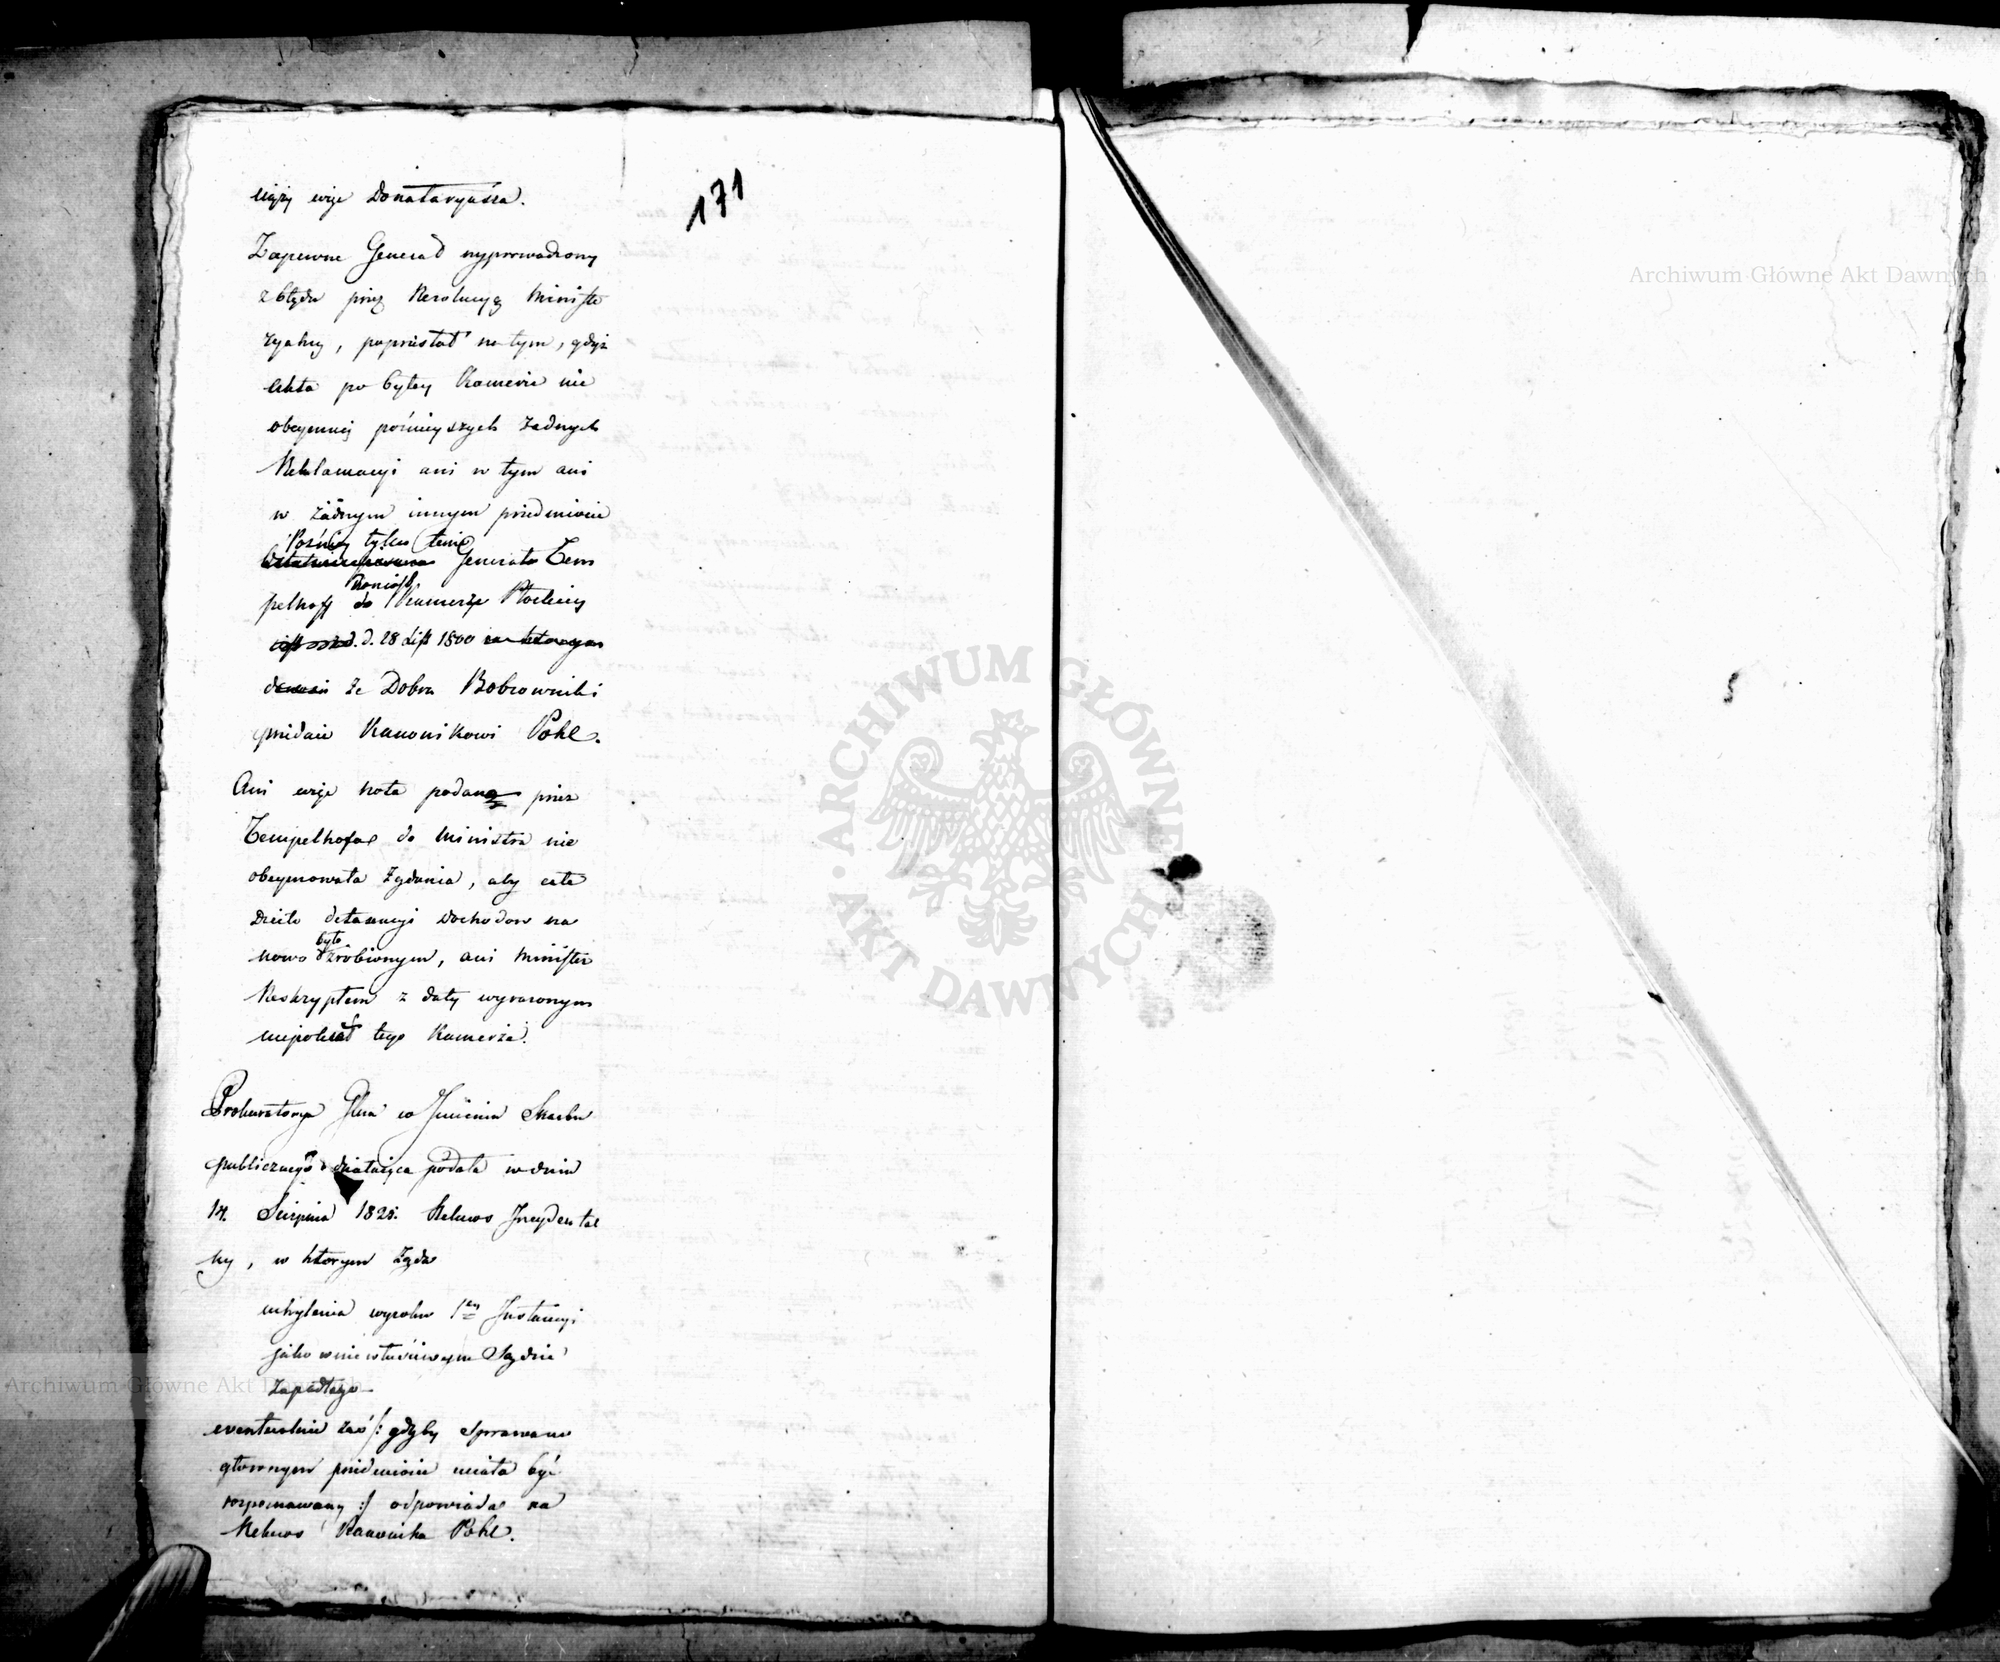 171
więc Donataryusza.
Zapewne Generał wyprowadzony
z błędu przez Rezolucyę Ministe
ryalną, poprzestał na tym, gdyż
Akta po byłey Kamerze nie
obeymuią poźnieyszych żadnych
Reklamacyi ani w tym ani
w żadnym innym przedmiocie
Poźniey tylko tenże
Generał Tem
Doniosł
pelhoff do Kamery Płockiey
d. d. 28 List 1800
że Dobra Bobrowniki
przedaie Kanonikowi Pohl.
Ani więc nota podana przez
Tempelhofa do Ministra nie
obeymowała żądania, aby całe
dzieło detaxacyi dochodow na
było
nowo zrobionym, ani Minister
Reskryptem z daty wyrażonym
niepolecał tego Kamerze.
Prokuratorya Glna w Imieniu Skarbu
publicznego działaiąca podała w dniu
14. Sierpnia 1820. Rekurs Incydental
ny, w ktorym żąda
uchylenia wyroku 1ey Instancyi
jako w niewłaściwym Sądzie
zapadłego
eventualnie zaś /: gdyby sprawa w
głownym przedmiocie miała być
rozpoznawaną :/ odpowiada na
Rekurs Kanonika Pohl.
Archiwum Główne Akt Dawnych
Archiwum Główne Akt Dawnych
ARCHIWUM GŁÓWNE AKT DAWNYCH